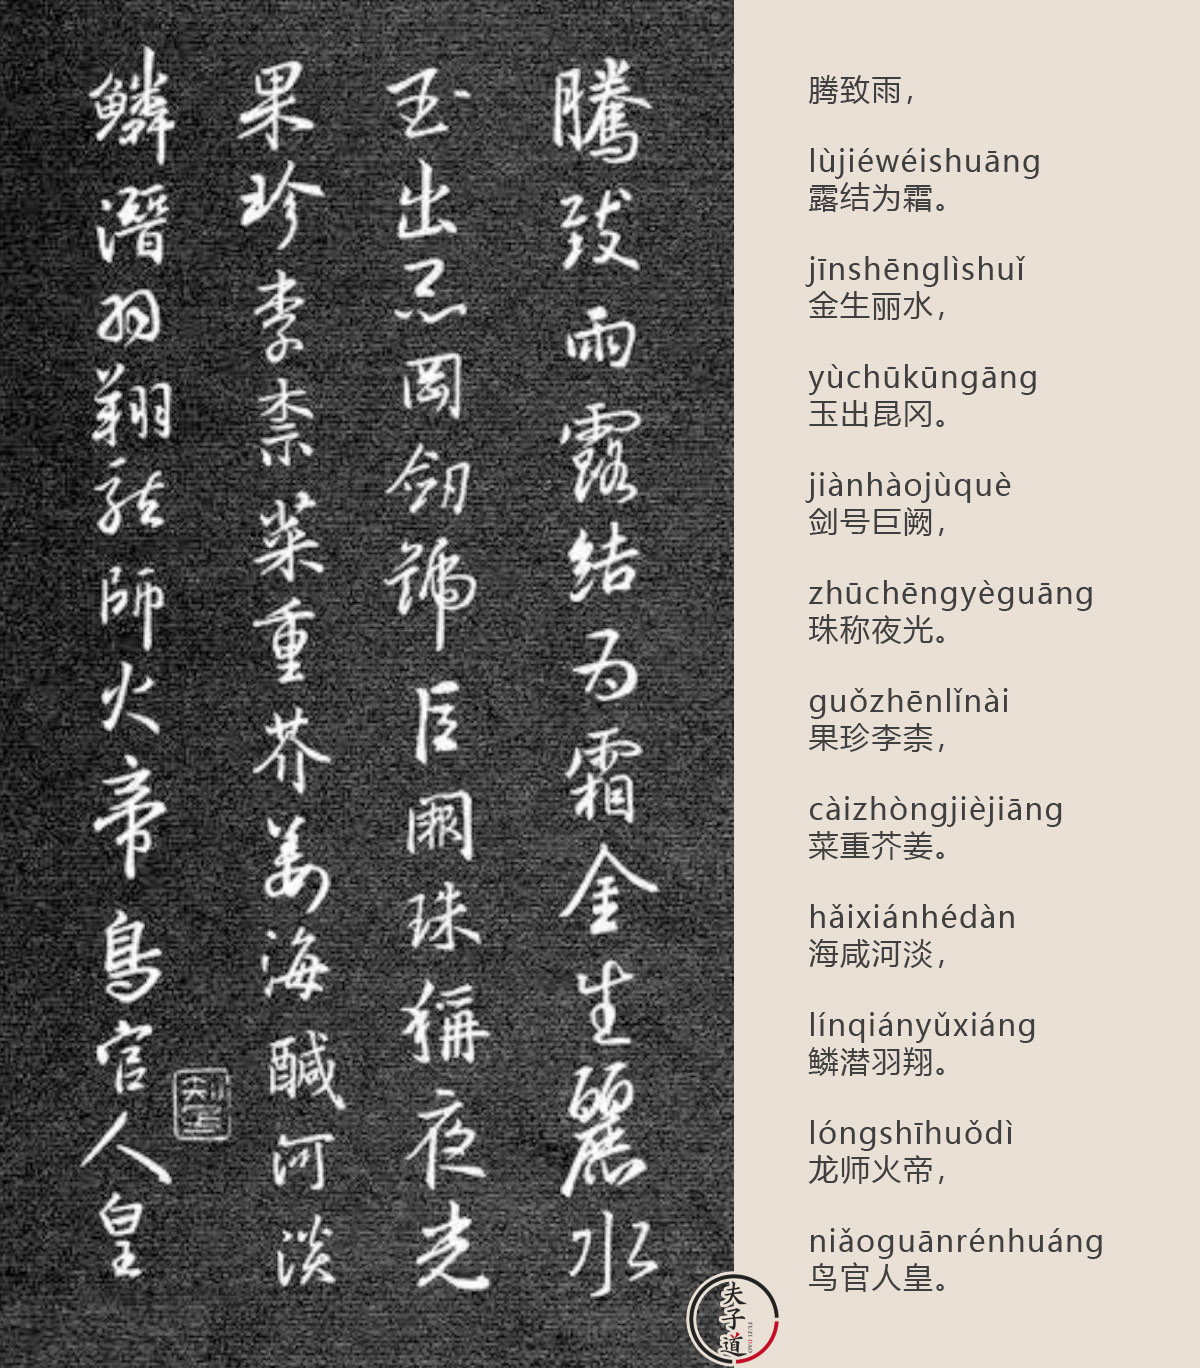 騰致雨露结为霜金生麗水
玉出崐岡劎號巨闕珠稱夜光
果珍李柰菜重芥姜海醎河淡
鳞潛羽翔龍師火帝鳥官人皇
腾致雨，
lùjiéwéishuāng
露结为霜。
jīnshēnglìshuǐ
金生丽水，
yùchūkūngāng
玉出昆冈。
jiànhàojùquè
剑号巨阙，
zhūchēngyèguāng
珠称夜光。
guǒzhēnlǐnài
果珍李柰，
càizhòngjièjiāng
菜重芥姜。
hǎixiánhédàn
海咸河淡，
línqiányǔxiáng
鳞潜羽翔。
lóngshīhuǒdì
龙师火帝，
niǎoguānrénhuáng
鸟官人皇。
夫子道
FUZI DAO